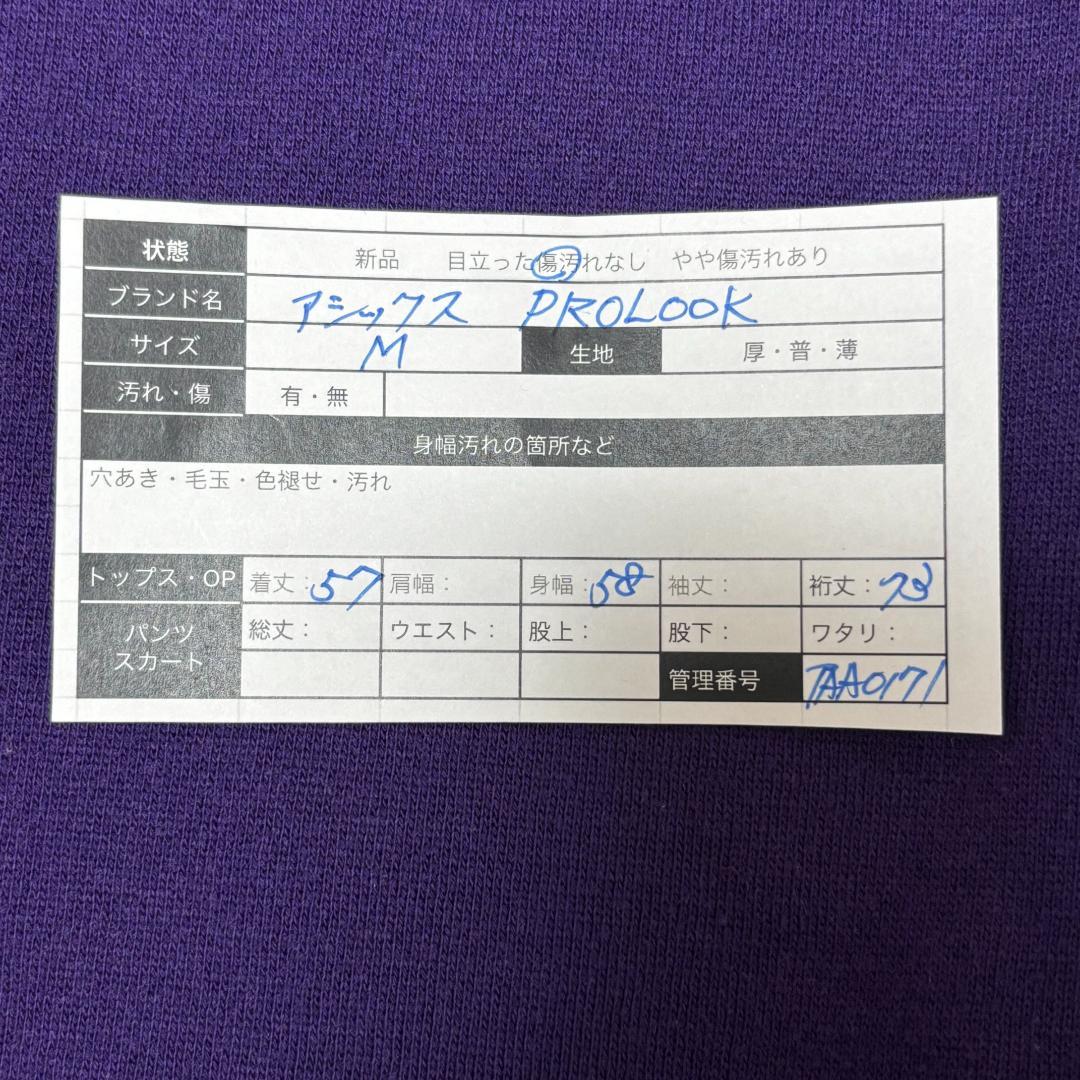 状態 新品 目立った傷汚れなし やや傷汚れあり
ブランド名 アシックス PROLOOK
サイズ M 生地 厚・普・薄
汚れ・傷 有・無
身幅汚れの箇所など
穴あき・毛玉・色褪せ・汚れ
トップス・OP 着丈：57 肩幅： 身幅：58 袖丈： 裄丈：73
パンツ 総丈： ウエスト： 股上： 股下： ワタリ：
スカート 管理番号 TAA0171